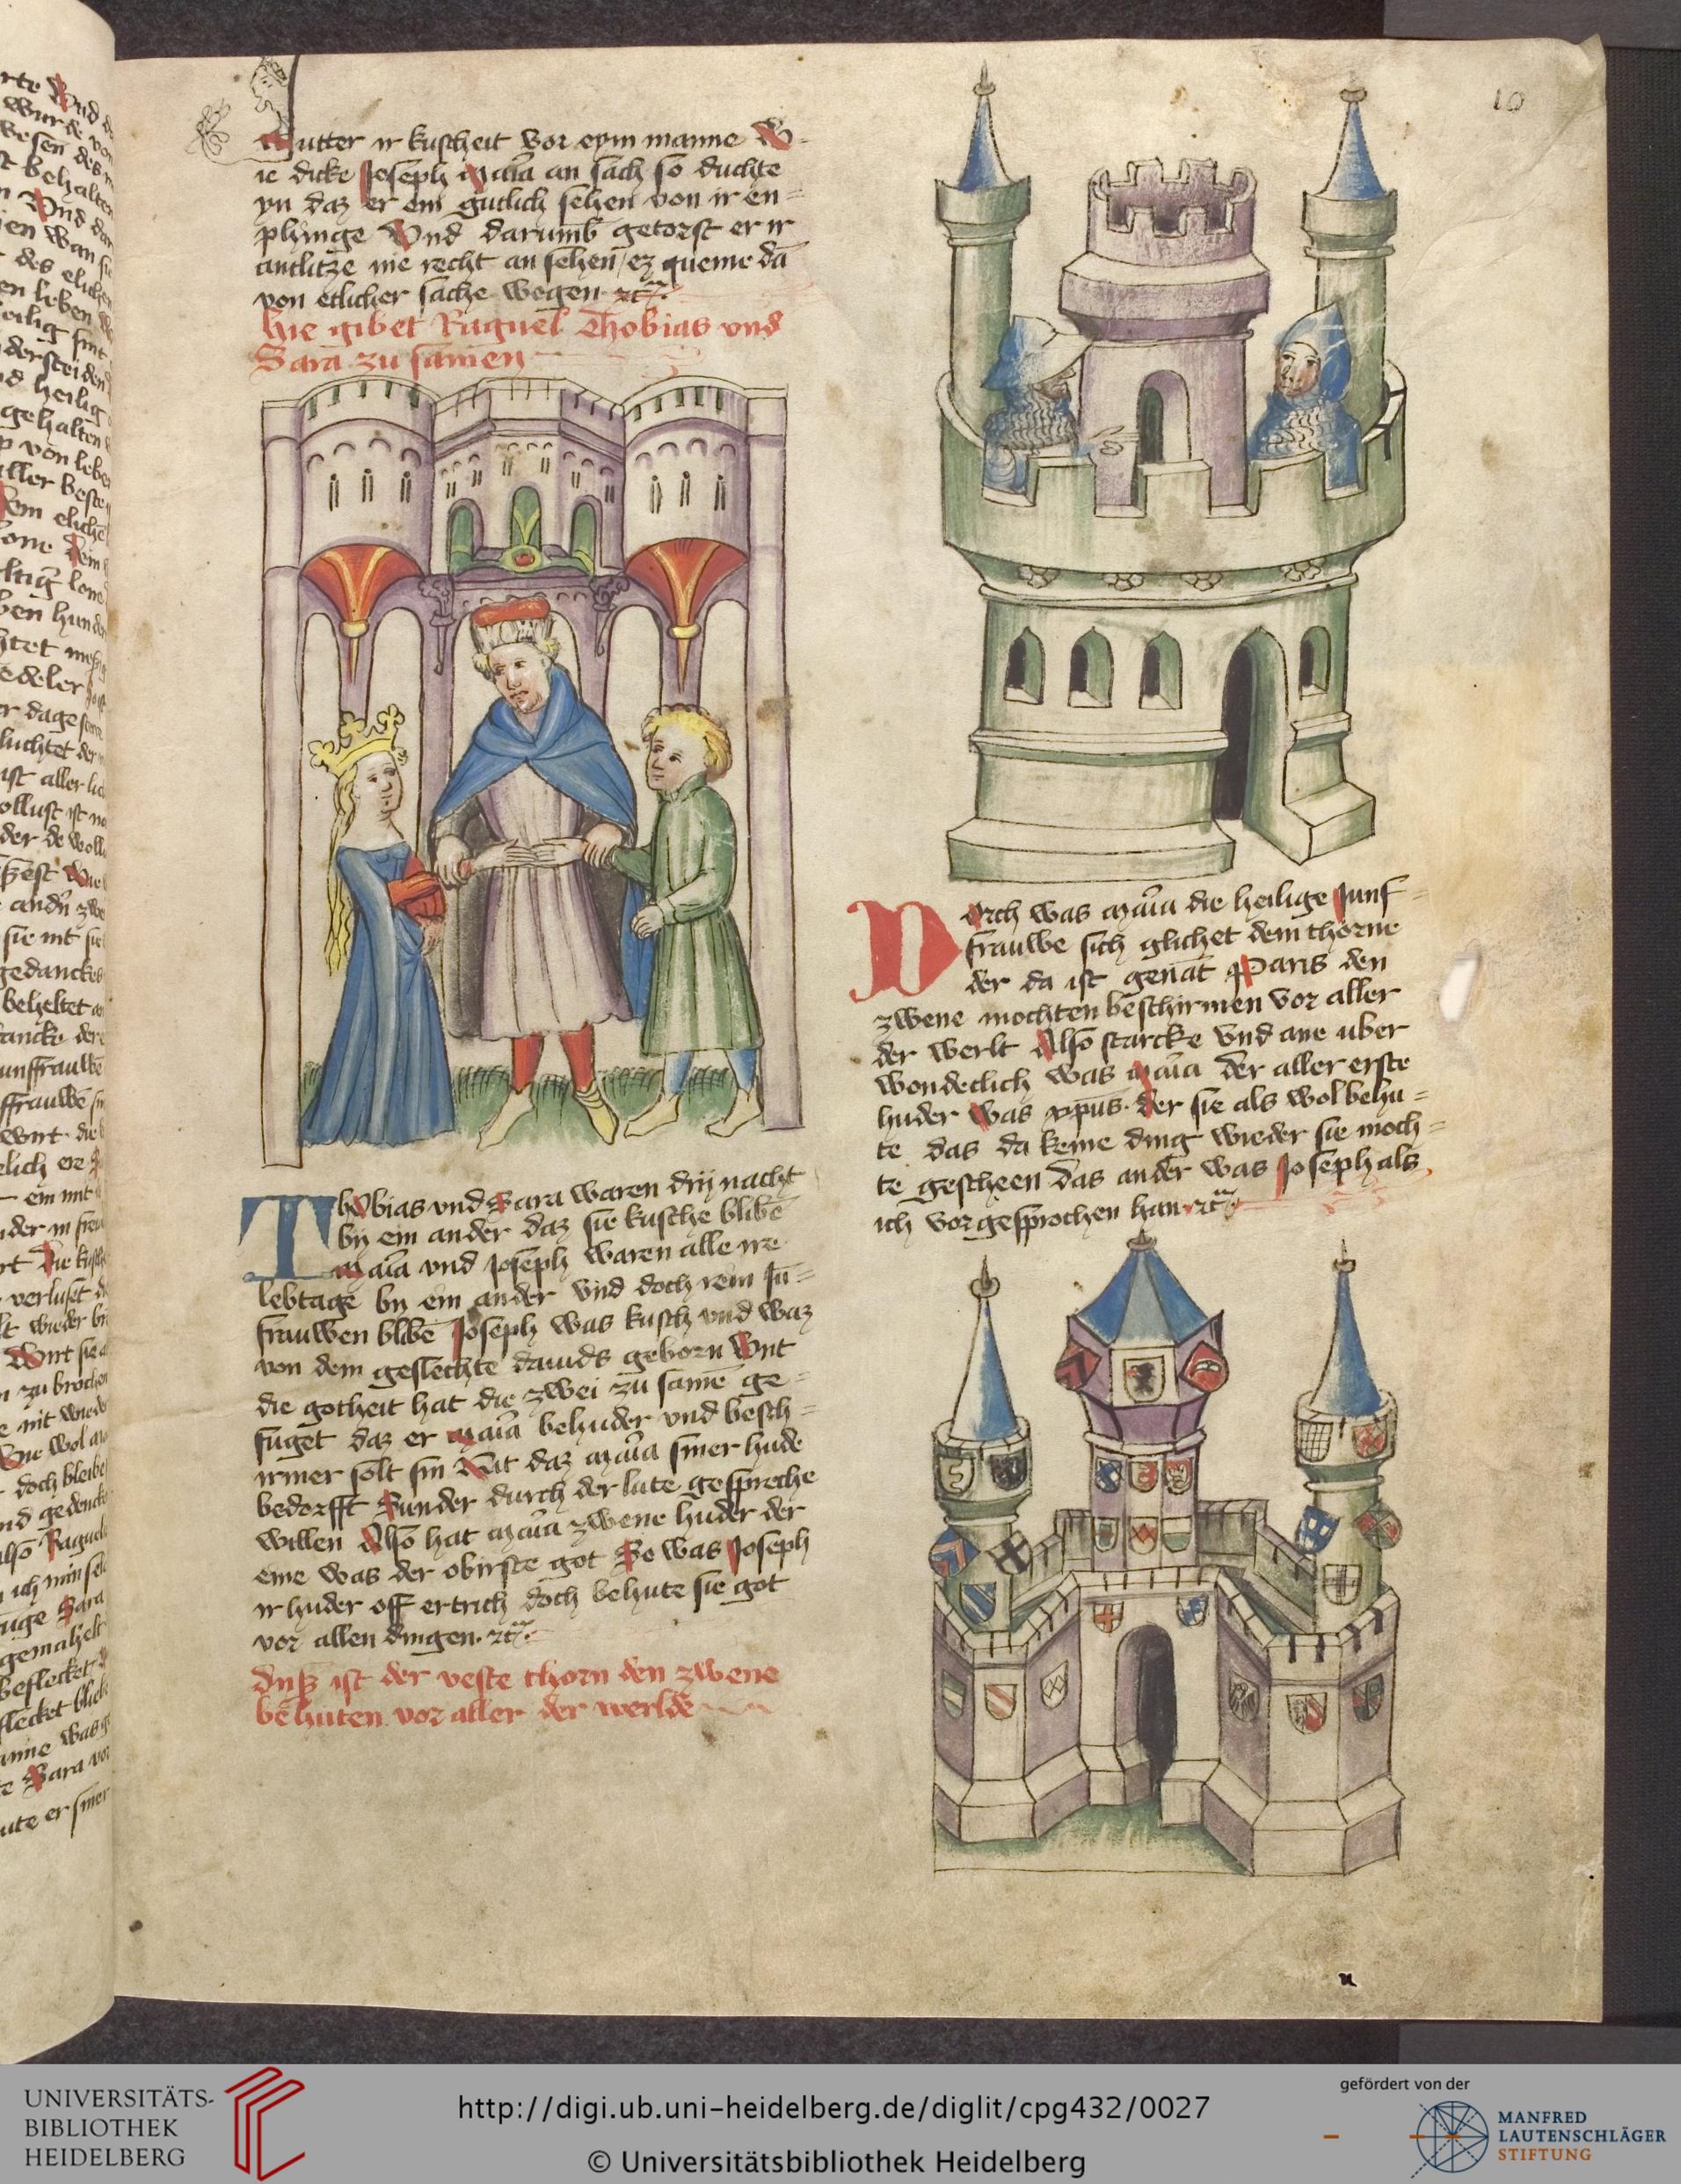 10
Mutter ir kuscheit vor eym manne W-
ie dicke Joseph Maria an sach so duchte
yn daz er ein gutlich sehen von ir en=
phinge Vnd darumb getorst er ir
antlitze nie recht an sehen / ez queme dā
von etlicher sache wegen ꝛc
hie gibet Raguel Thobias vnd
Sara zu samen
Thobias vnd Sara waren drij nacht
by ein ander daz sie kusche blibē
Maīa vnd Joseph waren alle ire
lebtage by ein ander vnd doch rein Jū=
frauwen blibē Joseph was kusch vnd waz
von dem geslechte dauids geborn Vnt
die gotheit hat die zwei zu samē ge=
fuget daz er maīa behuder vnd besch=
irmer solt sin Nit daz maīa siner hude
bedorfft Sunder durch der lute gespreche
willen Also hat maīa zwene huder der
eine was der obirste got So was Joseph
ir huder off ertrich doch behute sie got
vor allen dingen ꝛc
Diß ist der veste thorn den zwene
behuten vor aller der werlde
Durch was maīa die heilige Junf=
frauwe sich glichet dem thorne
der da ist genāt Paris den
zwene mochten beschirmen vor aller
der werlt Also starcke vnd ane uber
wondelich was maīa Der aller erste
huder was xp̄us der sie als wol behu=
te das da keine ding wieder sie moch=
te gescheen Das ander was Joseph als
ich vor gesprochen han ꝛc
UNIVERSITÄTS-
BIBLIOTHEK
HEIDELBERG
http://digi.ub.uni-heidelberg.de/diglit/cpg432/0027
© Universitätsbibliothek Heidelberg
gefördert von der
MANFRED
LAUTENSCHLÄGER
STIFTUNG